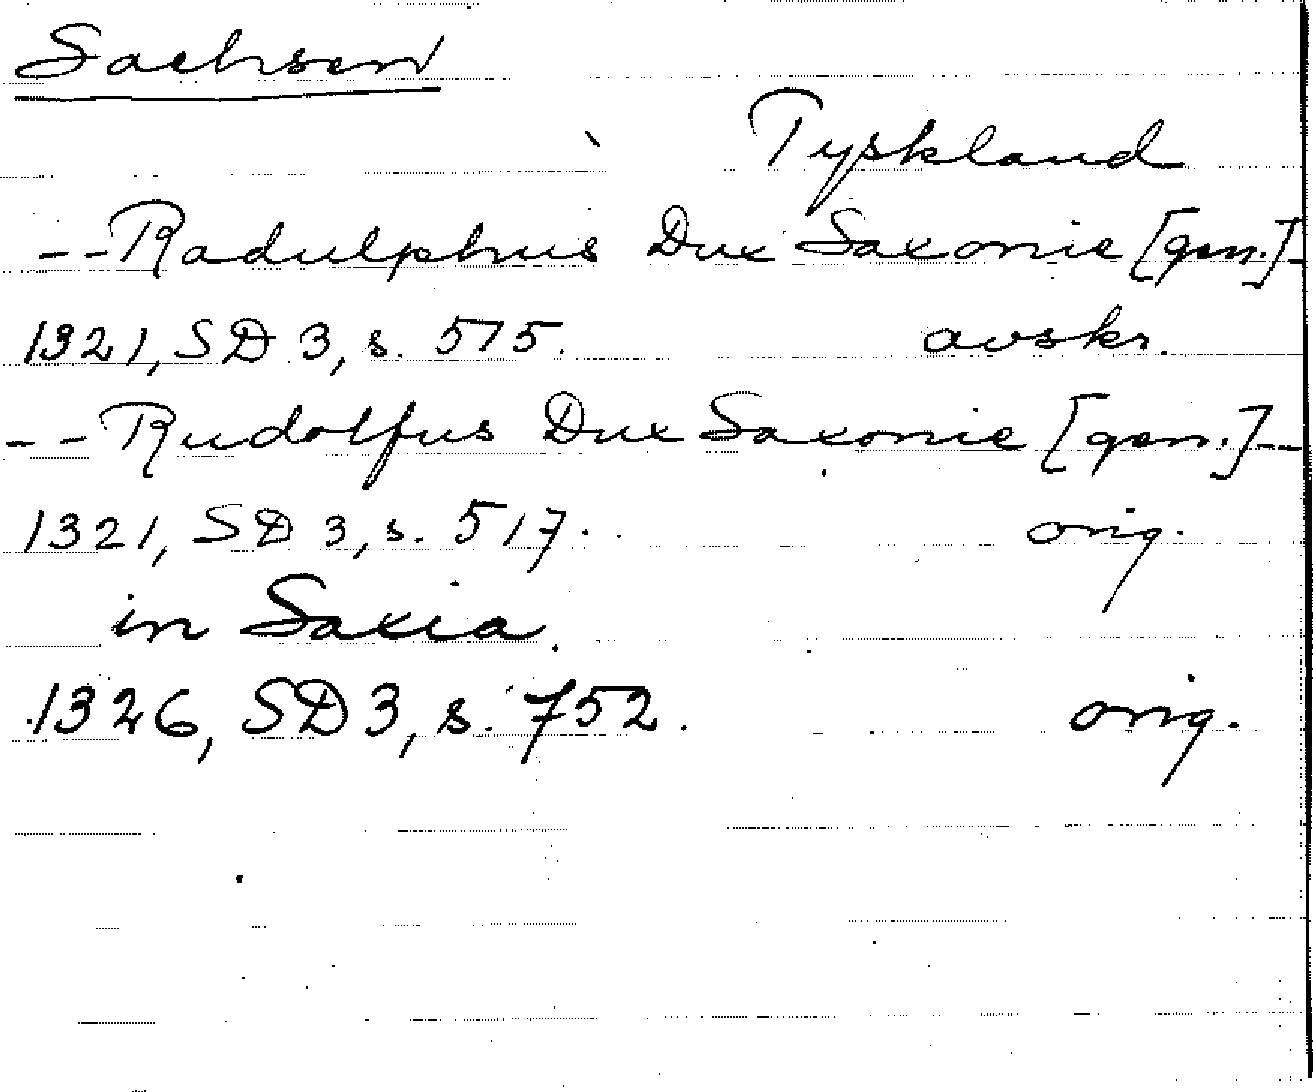 Sachsen
Tyskland
--Radulphus Dux Saxonie [gen.]-
1321, SD 3, s. 515. avskr.
--Rudolfus Dux Saxonie [gen.]--
1321, SD 3, s. 517. orig.
in Saxia.
1326, SD 3, s. 752. orig.